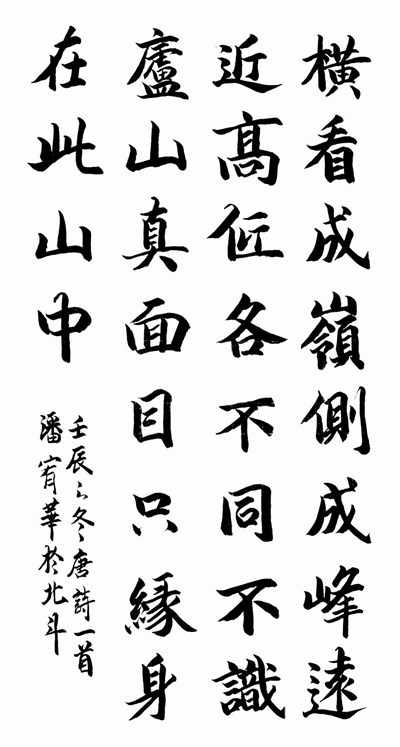 橫看成嶺側成峰遠
近髙低各不同不識
廬山真面目只緣身
在此山中
壬辰之冬唐詩一首
潘宥華於北斗